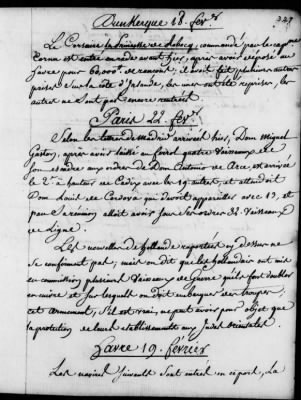 Dunkerque 18. fevr.
327
Le Corsaire la Princesse de Robecq, commandé par le cap.ne
Corne est entré en rade avant hier, après avoir déposé au
havre pour 60,000.# de rancons; il avoit fait plusieurs autres
prises sur la côte d'Irlande, les unes ont été reprises, les
autres ne sont pas encore rentrées.
Paris 22. fevr.
Selon les lettres de Madrid arrivées hier, Dom Miguel
Gaston, après avoir laissé au ferrol quatre Vaisseaux de
son escadre aux ordres de Dom Antonio de Arce, est arrivé
le 2. à hauteur de Cadix avec les 19 autres, et attendoit
Dom Louis de Cordova qui devoit appareiller avec 13, et
par sa réunion alloit avoir sous ses ordres 32 Vaisseaux
de Ligne.
Les nouvelles de hollande rapportées cy dessus ne
se confirment pas; mais on dit que les hollandois ont mis
en commission plusieurs Vaisseaux de Guerre qu'ils font doubler
en cuivre et sur lesquels on doit embarquer des troupes;
cet armement, s'il est vrai, ne peut avoir pour objet que
la protection de leurs etablissements aux Indes orientales.
havre 19. fevrier
Les navires suivants sont entrés en ce port, La